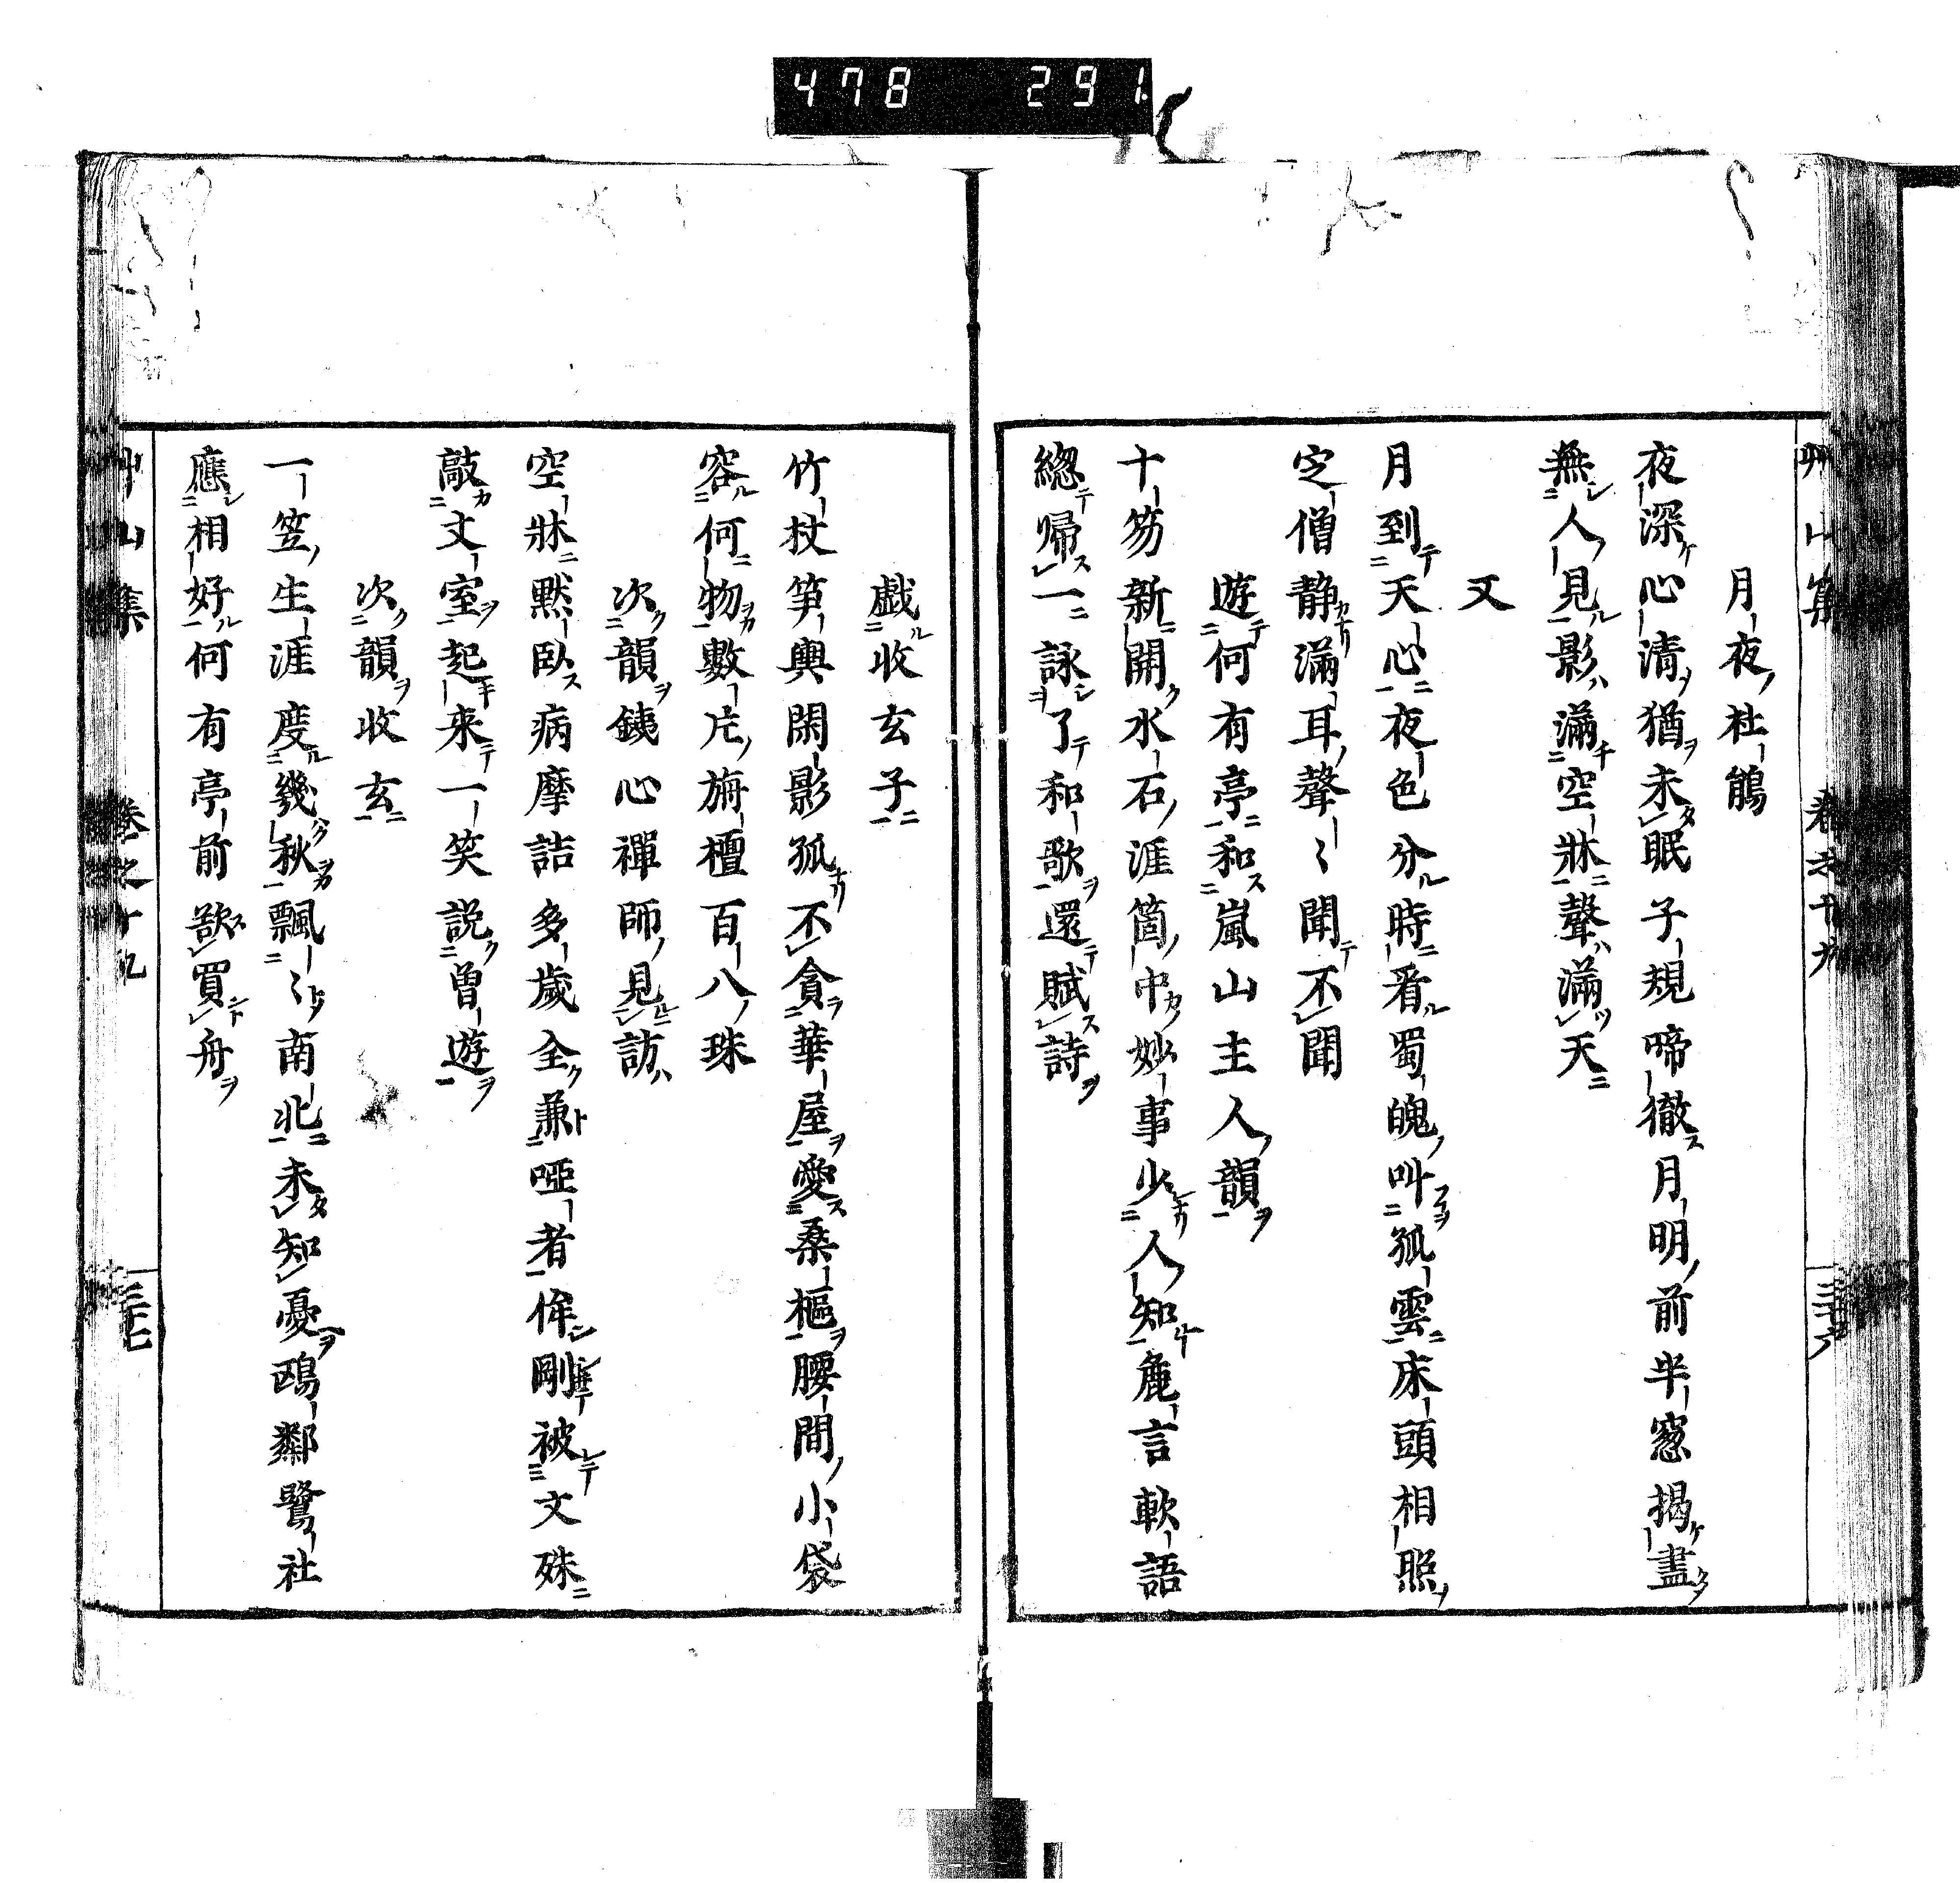 478 291
艸山集 卷之十九 三十六
月夜杜鵑
夜深心清猶未眠子規啼徹月明前半窓揭盡
無人見影滿空牀聲滿天
又
月到天心夜色分時看蜀魄叫孤雲床頭相照
定僧静滿耳聲〻聞不聞
遊何有亭和嵐山主人韻
十笏新開水石涯箇中妙事少人知麁言軟語
緫歸一詠了和歌還賦詩
戯收玄子
竹杖笋輿閑影孤不貪華屋愛桑樞腰間小袋
容何物數片旃檀百八珠
次韻銕心禪師見訪
空牀黙臥病摩詰多歲全兼啞者侔剛被文殊
敲文室起来一笑説曽遊
次韻收玄
一笠生涯度幾秋飄〻南北未知憂鴎鄰鷺社
應相好何有亭前欲買舟
艸山集 卷之十九 三十七